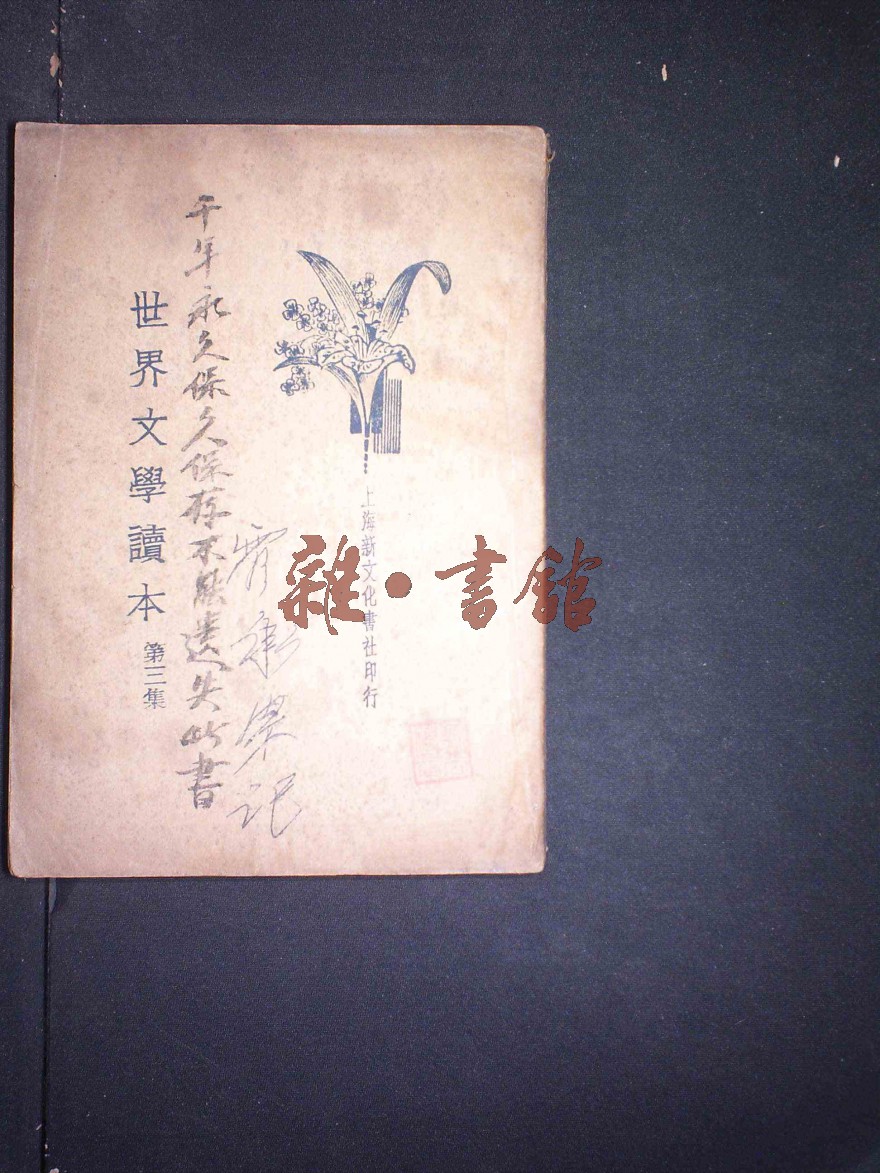 上海新文化書社印行
千年永久保久保存不能遗失此書
世界文學讀本
第三集
雜·書館